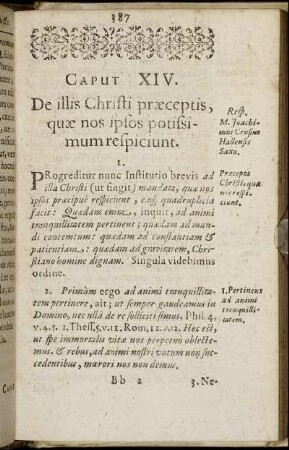 387
CAPUT XIV.
De illis Christi præceptis,
quæ nos ipsos potissi-
mum respiciunt.
Resp.
M. Joachi-
mus Crusius
Hallensis
Saxo.
1.
PRogreditur nunc Institutio brevis ad
illa Christi (ut fingit) mandata, quæ nos
ipsos præcipuè respiciunt, eaq́; quadruplicia
facit: Quædam enim, inquit, ad animi
tranquillitatem pertinent; quædam ad mun-
di contemtum: quædam ad constantiam &
patientiam: quædam ad gravitatem, Chri-
stiano homine dignam. Singula videbimus
ordine.
Præcepta
Christi quæ
nos respi-
ciunt.
2. Primùm ergo ad animi tranquillita-
tem pertinere, ait; ut semper gaudeamus in
Domino, nec ullâ de re solliciti simus. Phil. 4.
v. 4. 5. 1. Thess. 5. v. 11. Rom. 12. v. 12. Hoc est,
ut spe immortalis vitæ nos perpetuò oblecte-
mus. & rebus, ad animi nostri votum non suc-
cedentibus, mœrori nos non demus.
1. Pertinens
ad animi
tranquilli-
tatem.
Bb 2
3. Ne-